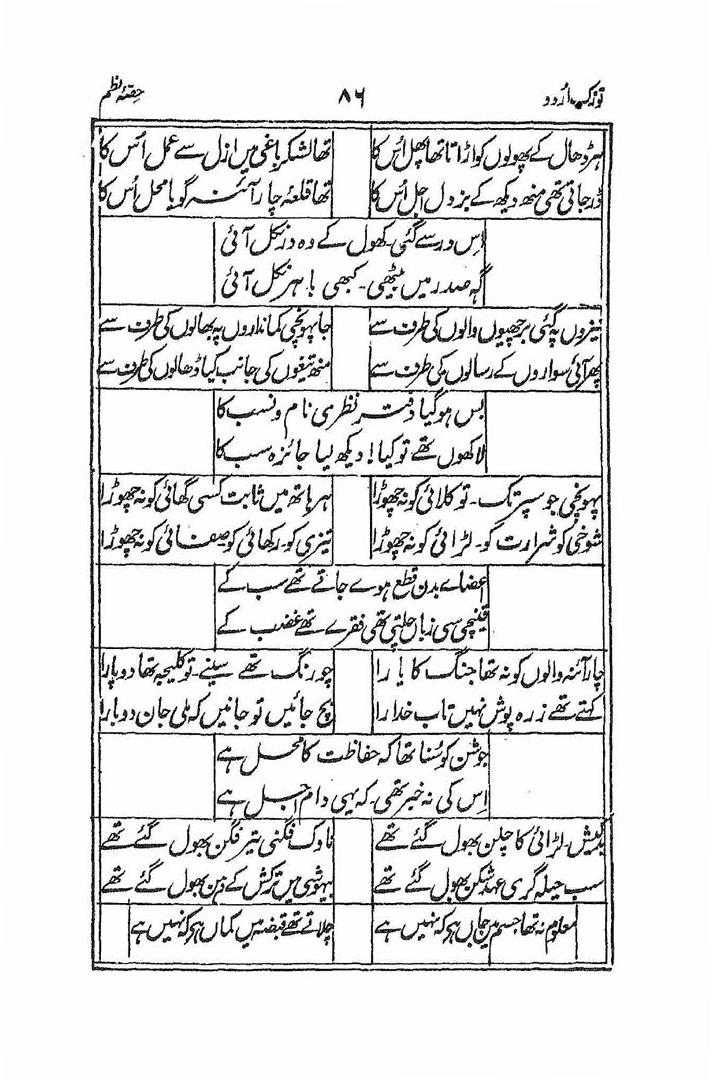 توزکِ اُردو ۸۶ حصّۂ نظم
ہر ڈھال کے پھولوں کو اڑاتا تھا پھل اُس کا تھا لشکرِ باغی میں ازل سے عمل اُس کا
ڈر جاتی تھی منھ دیکھ کے بزدل اجل اُس کا تھا قلعۂ چار آئنہ گویا محل اُس کا
اِس در سے گئی۔ کھول کے وہ در نکل آئی
گہ صدر میں بیٹھی۔ کبھی باہر نکل آئی
نیزوں پہ گئی برچھیوں والوں کی طرف سے جا پہونچی کمانداروں پہ بھالوں کی طرف سے
پھر آئی سواروں کے رسالوں کی طرف سے منھ تیغوں کی جانب کیا ڈھالوں کی طرف سے
بس ہو گیا دفتر نظری نام و نسب کا
لاکھوں تھے تو کیا! دیکھ لیا جائزہ سب کا
پہونچی جو سپر تک۔ تو کلائی کو نہ چھوڑا ہر ہاتھ میں ثابت کسی گھائی کو نہ چھوڑا
شوخی کو شرارت کو۔ لڑائی کو نہ چھوڑا تیزی کو۔ رکھائی کو۔ صفائی کو نہ چھوڑا
اعضاے بدن قطع ہوے جاتے تھے سب کے
قینچی سی زباں چلتی تھی فقرے تھے غضب کے
چار آئنہ والوں کو نہ تھا جنگ کا یارا چورنگ تھے سینے۔ تو کلیجہ تھا دوپارا
کہتے تھے زرہ پوش نہیں تاب خدارا بچ جائیں تو جانیں کہ ملی جان دوبارا
جوشن کو سُنا تھا کہ حفاظت کا محل ہے
اِس کی نہ خبر تھی۔ کہ یہی دامِ اجل ہے
بدکیش۔ لڑائی کا چلن بھول گئے تھے ناوک فگنی تیر فگن بھول گئے تھے
سب حیلہ گری عہد شکن بھول گئے تھے بیہوشی میں ترکش کے دہن بھول گئے تھے
معلوم نہ تھا جسم میں جاں ہے کہ نہیں ہے چلاتے تھے قبضہ میں کماں ہے کہ نہیں ہے